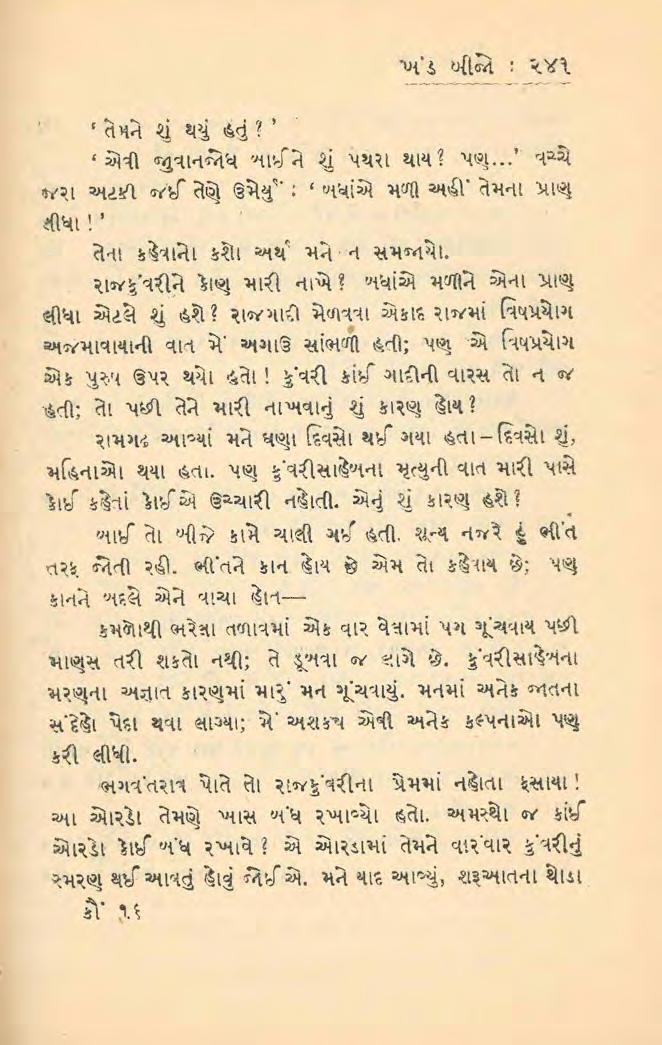 ખંડ બીજો : ૨૪૧
‘ તેમને શું થયું હતું ? ’
‘ એવી જુવાનજોધ બાઈને શું પથરા થાય ? પણ...’ વચ્ચે
જરા અટકી જઈ તેણે ઉમેર્યું : ‘ બધાંએ મળી અહીં તેમના પ્રાણ
લીધા ! ’
તેના કહેવાનો કશો અર્થ મને ન સમજાયો.
રાજકુંવરીને કોણ મારી નાખે ? બધાંએ મળીને એના પ્રાણ
લીધા એટલે શું હશે ? રાજગાદી મેળવવા એકાદ રાજમાં વિષપ્રયોગ
અજમાવાયાની વાત મેં અગાઉ સાંભળી હતી; પણ એ વિષપ્રયોગ
એક પુરુષ ઉપર થયો હતો ! કુંવરી કાંઈ ગાદીની વારસ તો ન જ
હતી; તો પછી તેને મારી નાખવાનું શું કારણ હોય ?
રામગઢ આવ્યાં મને ઘણા દિવસો થઈ ગયા હતા – દિવસો શું,
મહિનાઓ થયા હતા. પણ કુંવરીસાહેબના મૃત્યુની વાત મારી પાસે
કોઈ કહેતાં કોઈએ ઉચ્ચારી નહોતી. એનું શું કારણ હશે ?
બાઈ તો બીજે કામે ચાલી ગઈ હતી. શૂન્ય નજરે હું ભીંત
તરફ જોતી રહી. ભીંતને કાન હોય છે એમ તો કહેવાય છે; પણ
કાનને બદલે એને વાચા હોત—
કમળોથી ભરેલા તળાવમાં એક વાર વેલામાં પગ ગૂંચવાય પછી
માણસ તરી શકતો નથી; તે ડૂબવા જ લાગે છે. કુંવરીસાહેબના
મરણના અજ્ઞાત કારણમાં મારું મન ગૂંચવાયું. મનમાં અનેક જાતના
સંદેહો પેદા થવા લાગ્યા; મેં અશક્ય એવી અનેક કલ્પનાઓ પણ
કરી લીધી.
ભગવંતરાવ પોતે તો રાજકુંવરીના પ્રેમમાં નહોતા ફસાયા !
આ ઓરડો તેમણે ખાસ બંધ રખાવ્યો હતો. અમસ્થો જ કાંઈ
ઓરડો કોઈ બંધ રખાવે ? એ ઓરડામાં તેમને વારંવાર કુંવરીનું
સ્મરણ થઈ આવતું હોવું જોઈએ. મને યાદ આવ્યું, શરૂઆતના થોડા
કૌં ૧૬